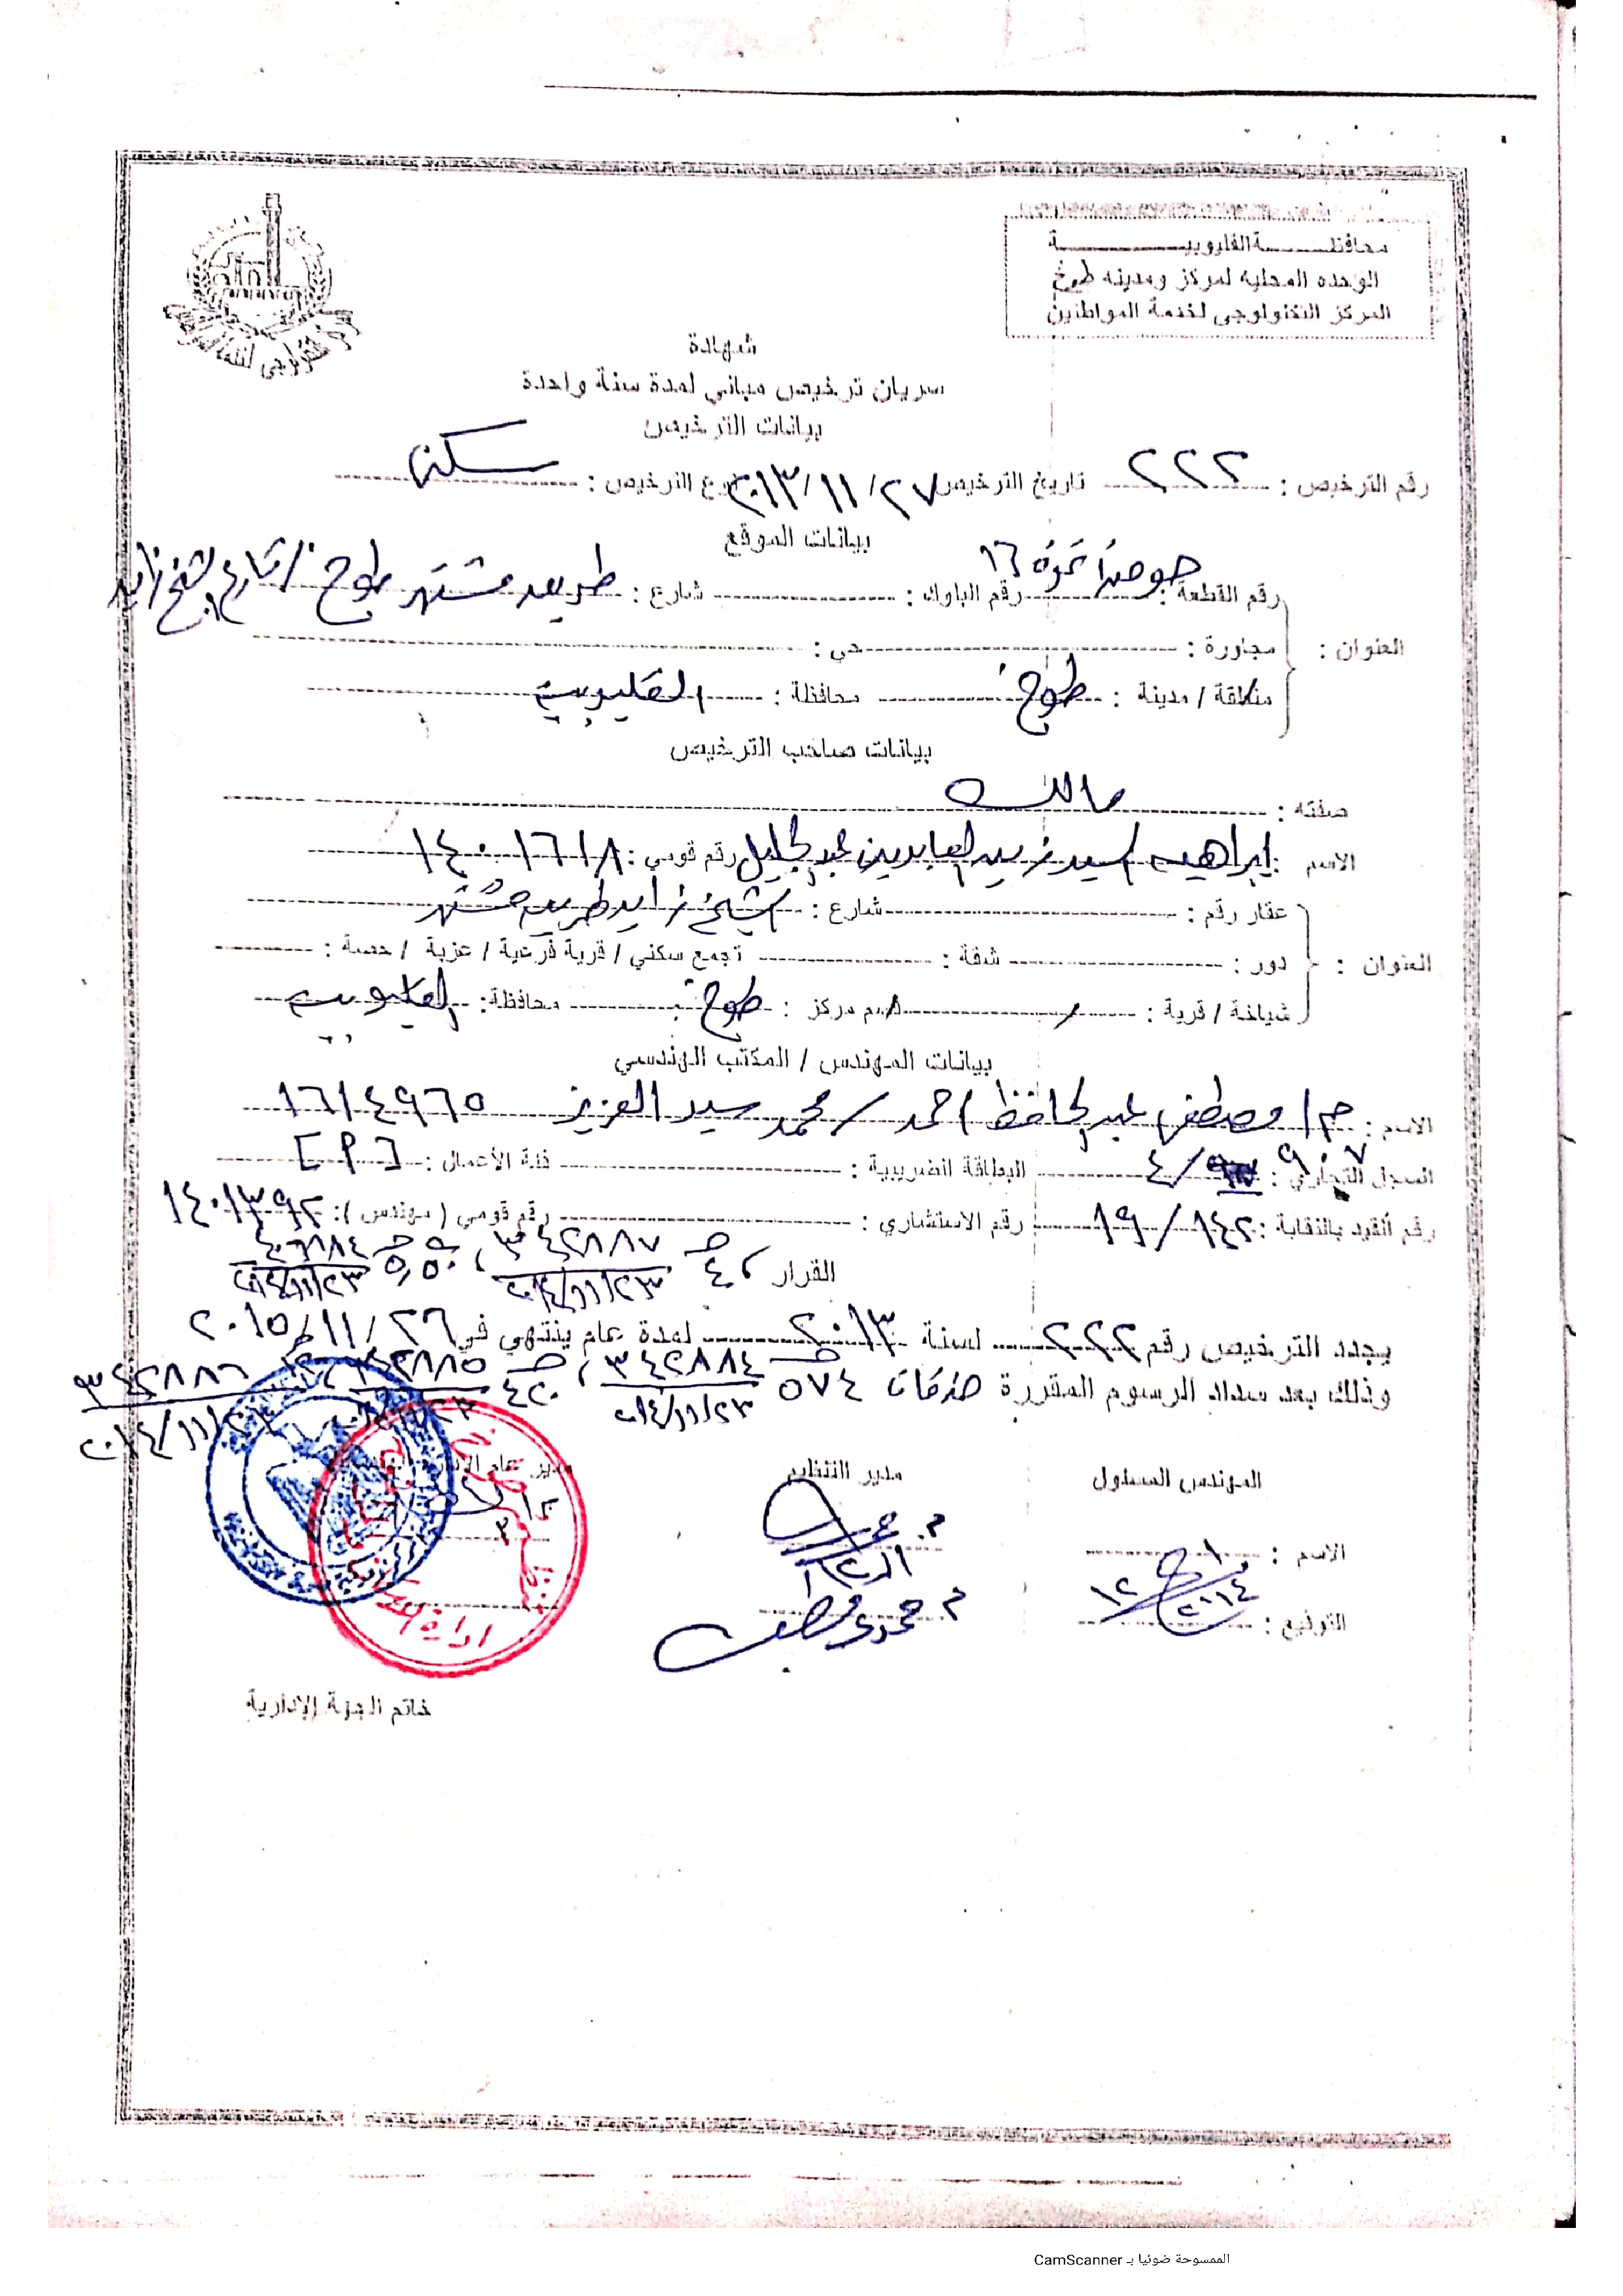 محافظة القليوبية
الوحده المحليه لمركز ومدينه طوخ
المركز التكنولوجى لخدمة المواطنين
شهادة
سريان ترخيص مباني لمدة سنة واحدة
بيانات الترخيص
رقم الترخيص : ٢٢٢ تاريخ الترخيص ٢٠١٣/١١/٢٧ نوع الترخيص : سكنى
بيانات الموقع
رقم القطعة : نمرة ١٦ رقم البلوك : شارع : طريق مشتهر طوخ / شارع الشيخ زايد
العنوان : مجاورة : حي :
منطقة / مدينة : طوخ محافظة : القليوبية
بيانات صاحب الترخيص
صفته : مالك
الاسم : ابراهيم السيد زين العابدين عبد الجليل رقم قومي : ١٤٠١٦١٨
عقار رقم : شارع : الشيخ زايد طريق مشتهر
العنوان : دور : شقة : تجمع سكني / قرية فرعية / عزبة / حصة :
شياخة / قرية : قسم مركز : طوخ محافظة : القليوبية
بيانات المهندس / المكتب الهندسي
الاسم : م / مصطفى عبد الحافظ احمد / محمد سيد العزيز ١٦١٤٩٦٥
السجل التجاري : ٤/٩٠٧ البطاقة الضريبية : فئة الأعمال : [ م ]
رقم القيد بالنقابة : ١٩/١٤٢ رقم الاستشاري : رقم قومي ( مهندس ) : ١٤٠١٣٩٢
القرار ٤٢ ٣٤٢٨٨٧
يجدد الترخيص رقم ٢٢٢ لسنة ٢٠١٣ لمدة عام ينتهي في ٢٠١٥/١١/٢٦
وذلك بعد سداد الرسوم المقررة ٥٧٤ ٣٤٢٨٨٤ ٤٢٠ ٣٤٢٨٨٥ ٣٤٢٨٨٦
٢٠١٤/١١/٢٣ ٢٠١٤/١١/٢٣
المهندس المسئول مدير التنظيم مدير عام الإدارة الهندسية
الاسم :
التوقيع :
ادارة
خاتم الجهة الإدارية
الممسوحة ضوئيا بـ CamScanner